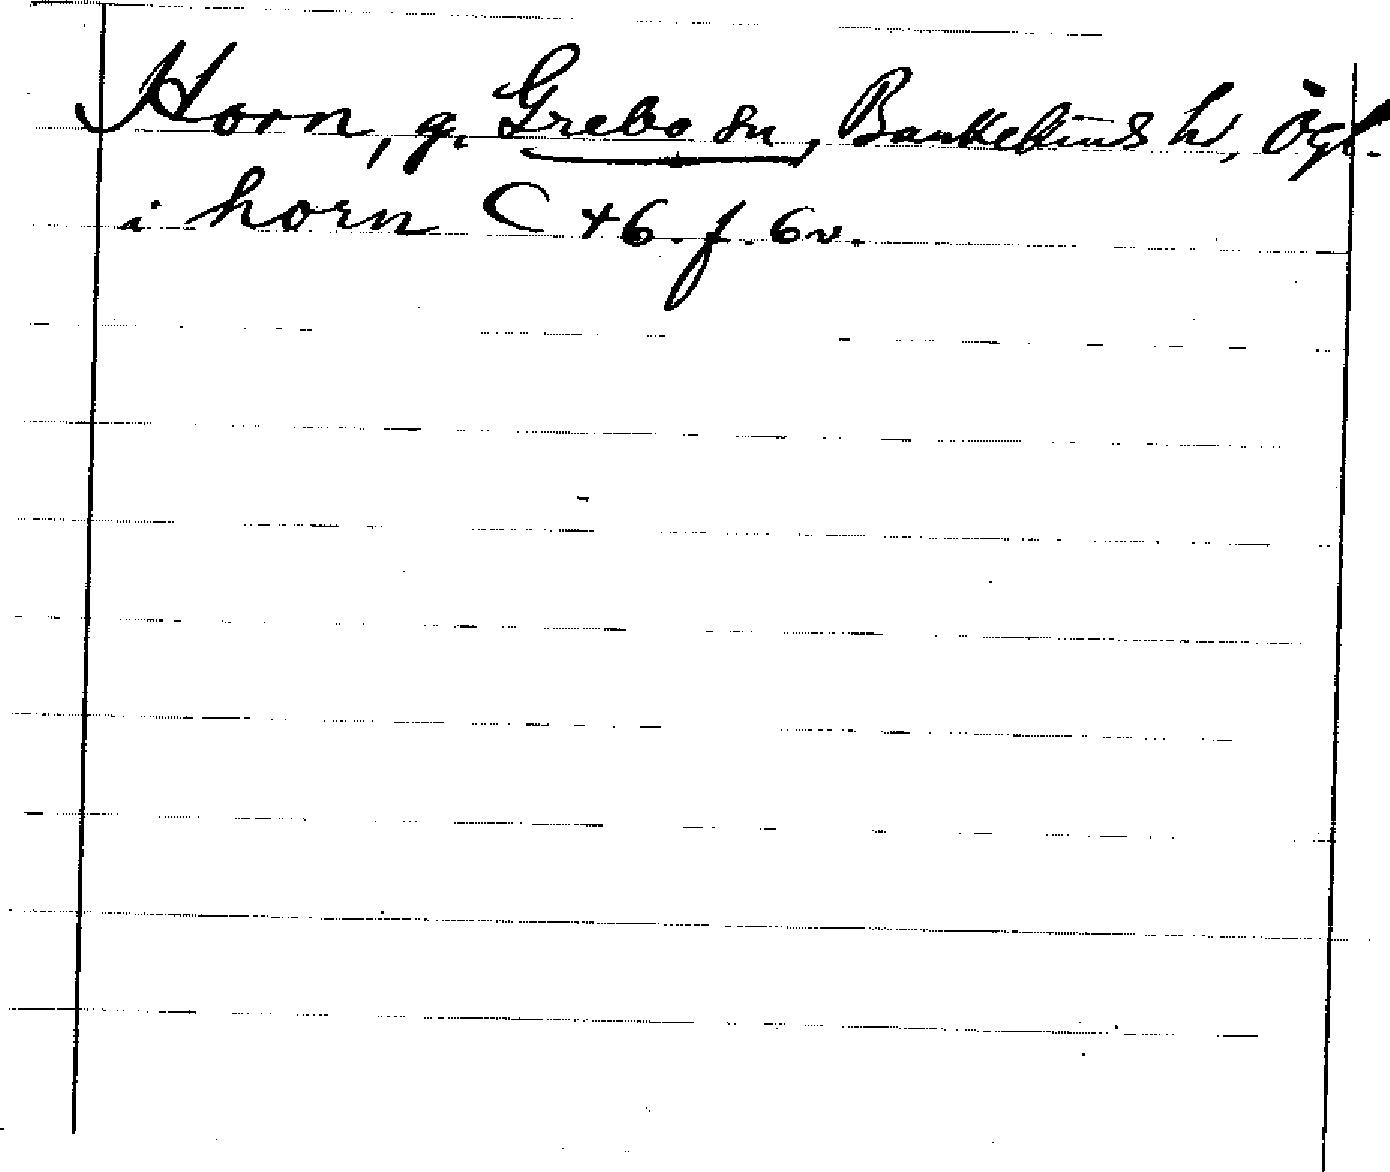 Horn, g. Grebo sn, Bankekinds hd, Ögl.
i horn C 46. f. 6v.